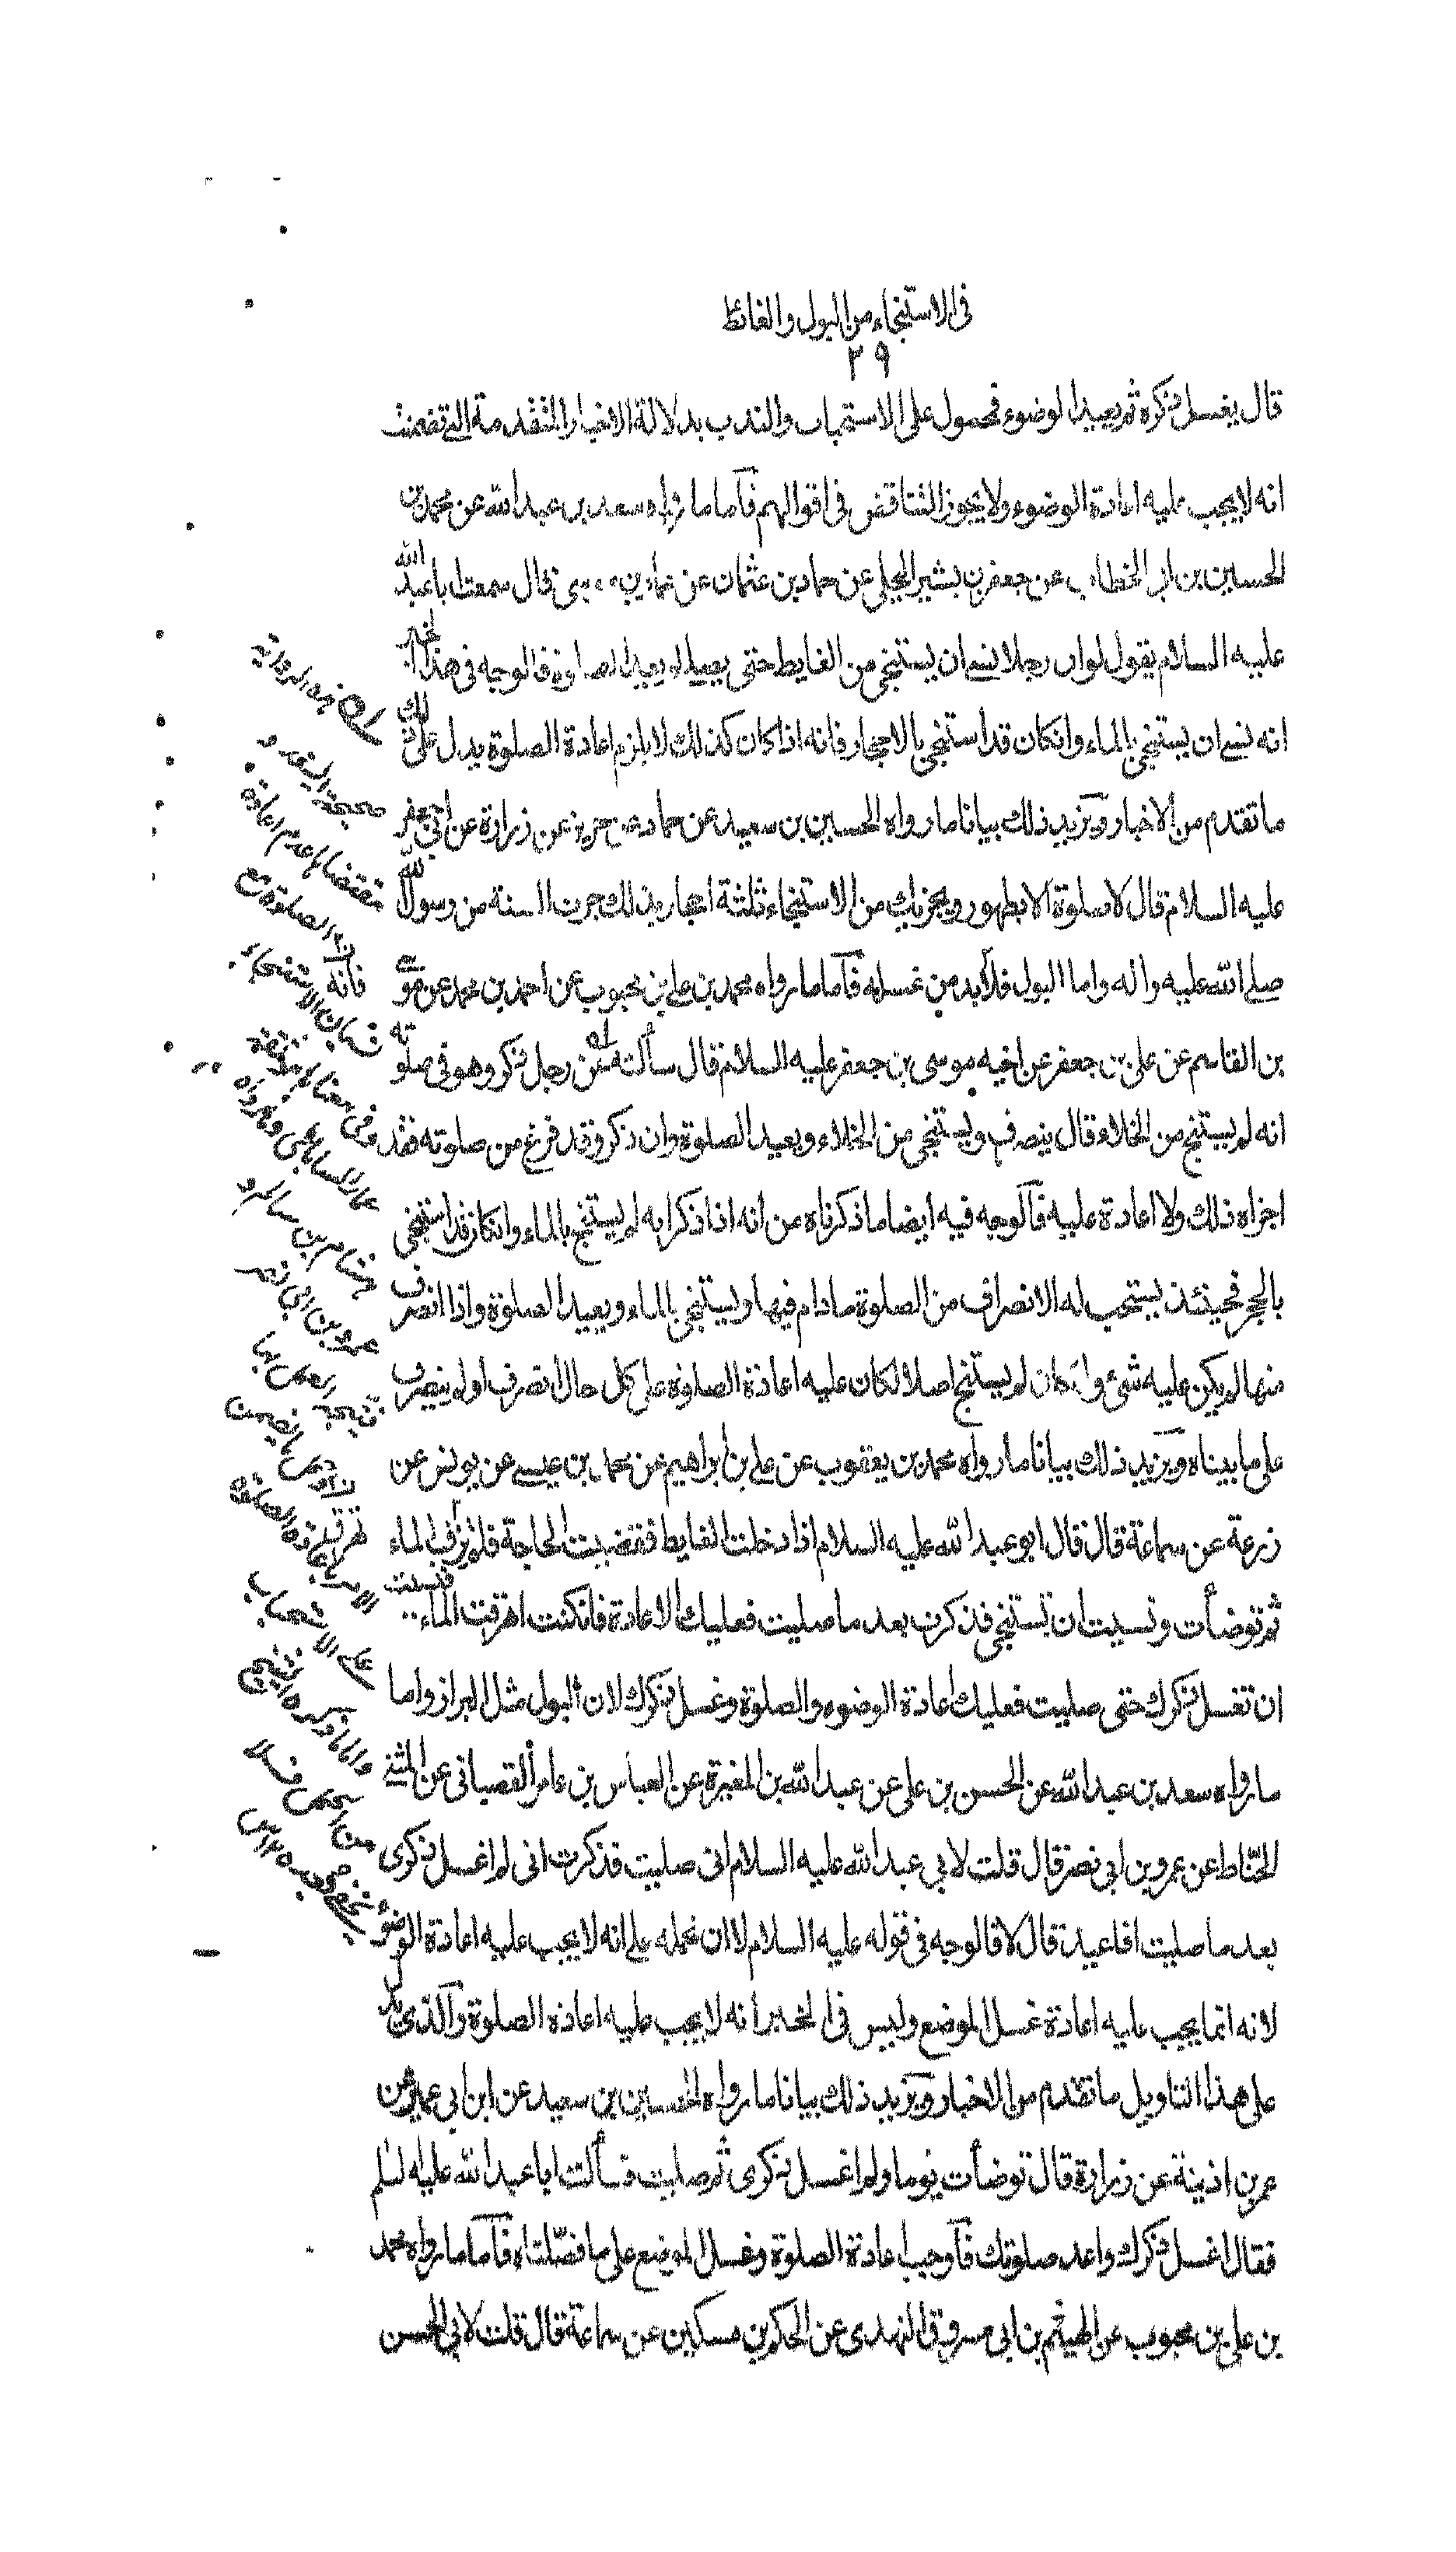 في الاستنجاء من البول والغائط
٢٩
قال يغسل ذكره ثم يعيد الوضوء فمحمول على الاستحباب والندب بدلالة الاخبار المتقدمة التي تضمنت
انه لا يجب عليه اعادة الوضوء ولا يجوز التناقض في اقوالهم فاما ما رواه سعد بن عبد الله عن محمد بن
الحسين بن ابي الخطاب عن جعفر بن بشير البجلي عن حماد بن عثمان عن عمار بن موسى قال سمعت ابا عبد الله
عليه السلام يقول لو ان رجلا نسي ان يستنجي من الغايط حتى يصلي لم يعد الصلوة فالوجه في هذا الخبر
انه نسي ان يستنجي بالماء وان كان قد استنجى بالاحجار فانه اذا كان كذلك لا يلزم اعادة الصلوة يدل على ذلك
ما تقدم من الاخبار ويزيد ذلك بيانا ما رواه الحسين بن سعيد عن حماد عن حريز عن زرارة عن ابي جعفر
عليه السلام قال لا صلوة الا بطهور ويجزيك من الاستنجاء ثلثة احجار بذلك جرت السنة من رسول الله
صلى الله عليه واله واما البول فلا بد من غسله فاما ما رواه محمد بن علي بن محبوب عن احمد بن محمد عن موسى
بن القاسم عن علي بن جعفر عن اخيه موسى بن جعفر عليه السلام قال سألته عن رجل ذكر وهو في صلوته
انه لم يستنج من الخلاء قال ينصرف ويستنجي من الخلاء ويعيد الصلوة وان ذكر وقد فرغ من صلوته فقد
اجزاه ذلك ولا اعادة عليه فالوجه فيه ايضا ما ذكرناه من انه اذا ذكر انه لم يستنج بالماء وان كان قد استنجى
بالحجر فحينئذ يستحب له الانصراف من الصلوة ما دام فيها ويستنجي بالماء ويعيد الصلوة واذا انصرف
منها لم يكن عليه شئ ولو كان لم يستنج اصلا لكان عليه اعادة الصلوة على كل حال انصرف او لم ينصرف
على ما بيناه ويزيد ذلك بيانا ما رواه محمد بن يعقوب عن علي بن ابراهيم عن محمد بن عيسى عن يونس عن
زرعة عن سماعة قال قال ابو عبد الله عليه السلام اذا دخلت الغايط فقضيت الحاجة فلم تهرق الماء
ثم توضأت ونسيت ان تستنجي فذكرت بعد ما صليت فعليك الاعادة فان كنت اهرقت الماء فنسيت
ان تغسل ذكرك حتى صليت فعليك اعادة الوضوء والصلوة وغسل ذكرك لان البول مثل البراز واما
ما رواه سعد بن عبد الله عن الحسن بن علي عن عبد الله بن المغيرة عن العباس بن عامر القصباني عن المثنى
الحناط عن عمرو بن ابي نصر قال قلت لابي عبد الله عليه السلام اني صليت فذكرت اني لم اغسل ذكري
بعد ما صليت افاعيد قال لا فالوجه في قوله عليه السلام لا ان نحمله على انه لا يجب عليه اعادة الوضوء
لانه انما يجب عليه اعادة غسل الموضع وليس في الخبر انه لا يجب عليه اعادة الصلوة والذي يدل
على هذا التاويل ما تقدم من الاخبار ويزيد ذلك بيانا ما رواه الحسين بن سعيد عن ابن ابي عمير عن
عمر بن اذينة عن زرارة قال توضأت يوما ولم اغسل ذكري ثم صليت فسألت ابا عبد الله عليه السلم
فقال اغسل ذكرك واعد صلوتك فاوجب اعادة الصلوة وغسل الموضع على ما فصلناه فاما ما رواه محمد
بن علي بن محبوب عن الهيثم بن ابي مسروق النهدي عن الحكم بن مسكين عن سماعة قال قلت لابي الحسن
هذه الرواية
صحيحة السند و
مقتضاها عدم اعادة
الصلوة مع
فانه
نسيان الاستنجاء
وفي معناها موثقة
عمار الساباطي وما رواه
هشام بن سالم و
عمرو بن ابي نصر
فيتجه العمل بها
وحمل ما يضمن
الامر باعادة الصلوة
على الاستحباب
واما ما ذكره الشيخ
من الحمل فلا
يخفى بعده